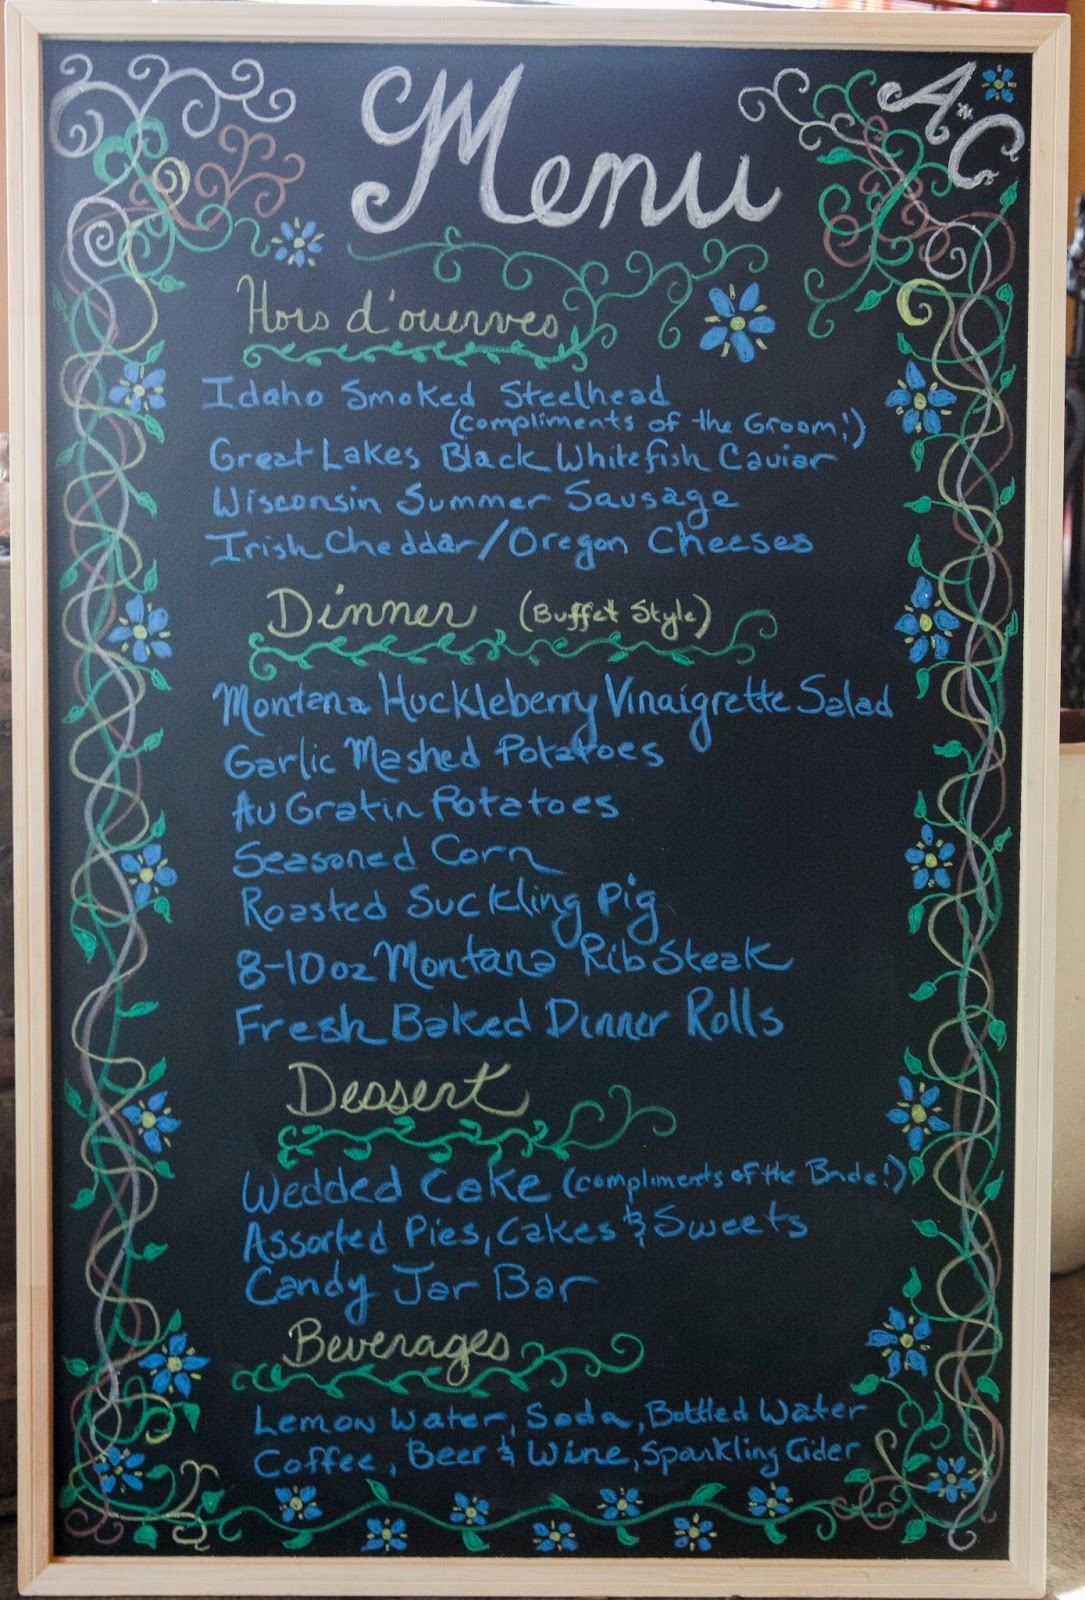 Menu
A*C
Hors d'ouerves
Idaho Smoked Steelhead
(compliments of the Groom!)
Great Lakes Black Whitefish Caviar
Wisconsin Summer Sausage
Irish Cheddar/Oregon Cheeses
Dinner (Buffet Style)
Montana Huckleberry Vinaigrette Salad
Garlic Mashed Potatoes
Au Gratin Potatoes
Seasoned Corn
Roasted Suckling Pig
8-10oz Montana Rib Steak
Fresh Baked Dinner Rolls
Dessert
Wedded Cake (compliments of the Bride!)
Assorted Pies, Cakes & Sweets
Candy Jar Bar
Beverages
Lemon Water, Soda, Bottled Water
Coffee, Beer & Wine, Sparkling Cider